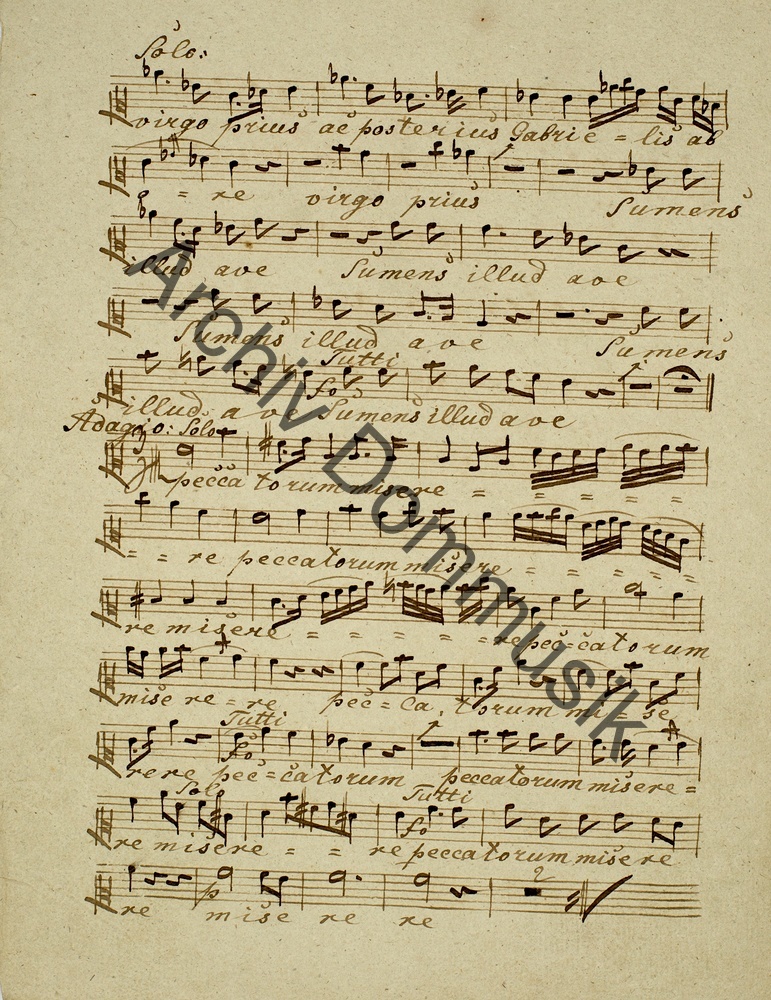 Solo:
virgo prius ac posterius Gabrie = lis ab
o = re virgo prius Sumens
illud ave Sumens illud ave
Sumens illud ave Sumens
Tutti
fo
illud ave Sumens illud ave
Adagio: Solo
peccatorum misere = = = = =
= = re peccatorum misere = = = = = =
re misere = = = = = re pec = catorum
misere = re pec = ca, torum mi = se
Tutti
fo
rere pec = catorum peccatorum misere =
Solo Tutti
fo
re misere = = re peccatorum misere
p 2
re misere re
Archiv Dommusik